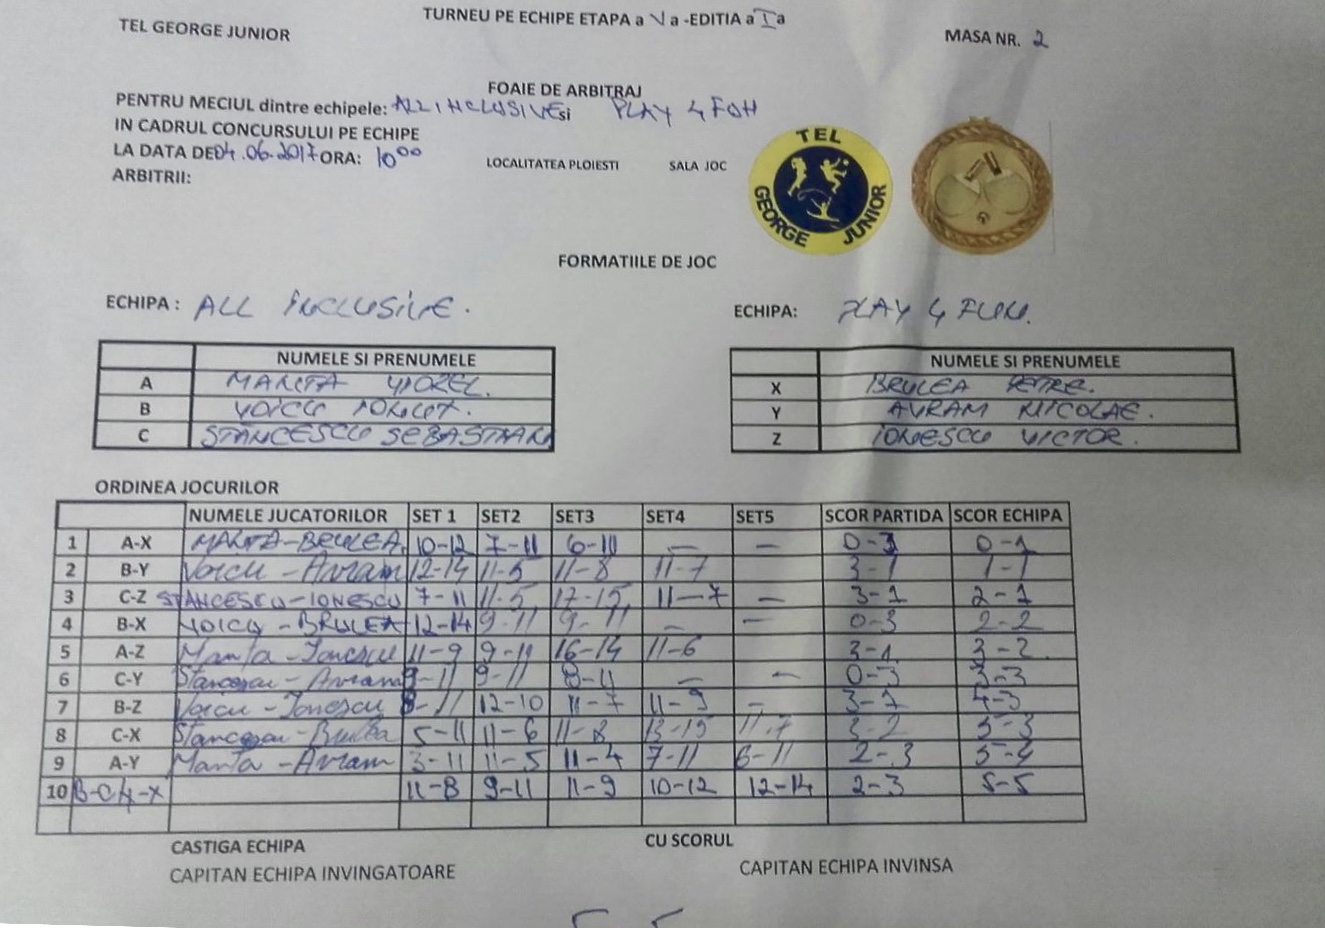 TURNEU PE ECHIPE ETAPA a V a -EDITIA a I a
TEL GEORGE JUNIOR
MASA NR. 2
FOAIE DE ARBITRAJ
PENTRU MECIUL dintre echipele: ALL INCLUSIVE si PLAY 4 FUN
IN CADRUL CONCURSULUI PE ECHIPE
LA DATA DE 04.06.2017 ORA: 10⁰⁰ LOCALITATEA PLOIESTI SALA JOC
ARBITRII:
TEL GEORGE JUNIOR
FORMATIILE DE JOC
ECHIPA : ALL INCLUSIVE. ECHIPA: PLAY 4 FUN.
NUMELE SI PRENUMELE NUMELE SI PRENUMELE
A MANTA VIOREL. X BRULEA PETRE.
B VOICU IONUT. Y AVRAM NICOLAE.
C STANCESCU SEBASTIAN Z IONESCU VICTOR.
ORDINEA JOCURILOR
NUMELE JUCATORILOR SET 1 SET2 SET3 SET4 SET5 SCOR PARTIDA SCOR ECHIPA
1 A-X MANTA-BRULEA 10-12 7-11 6-11 — — 0-3 0-1
2 B-Y Voicu-Avram 12-14 11-5 11-8 11-7 3-1 1-1
3 C-Z STANCESCU-IONESCU 7-11 11-5 17-15 11-7 - 3-1 2-1
4 B-X VOICU-BRULEA 12-14 9-11 9-11 - - 0-3 2-2
5 A-Z Manta-Ionescu 11-9 9-11 16-14 11-6 3-1 3-2
6 C-Y Stancescu-Avram 9-11 9-11 8-11 - - 0-3 3-3
7 B-Z Voicu-Ionescu 8-11 12-10 11-7 11-9 - 3-1 4-3
8 C-X Stancescu-Brulea 5-11 11-6 11-8 13-15 11-7 3-2 5-3
9 A-Y Manta-Avram 3-11 11-5 11-4 7-11 6-11 2-3 5-4
10 11-8 9-11 11-9 10-12 12-14 2-3 5-5
CASTIGA ECHIPA CU SCORUL
CAPITAN ECHIPA INVINGATOARE CAPITAN ECHIPA INVINSA